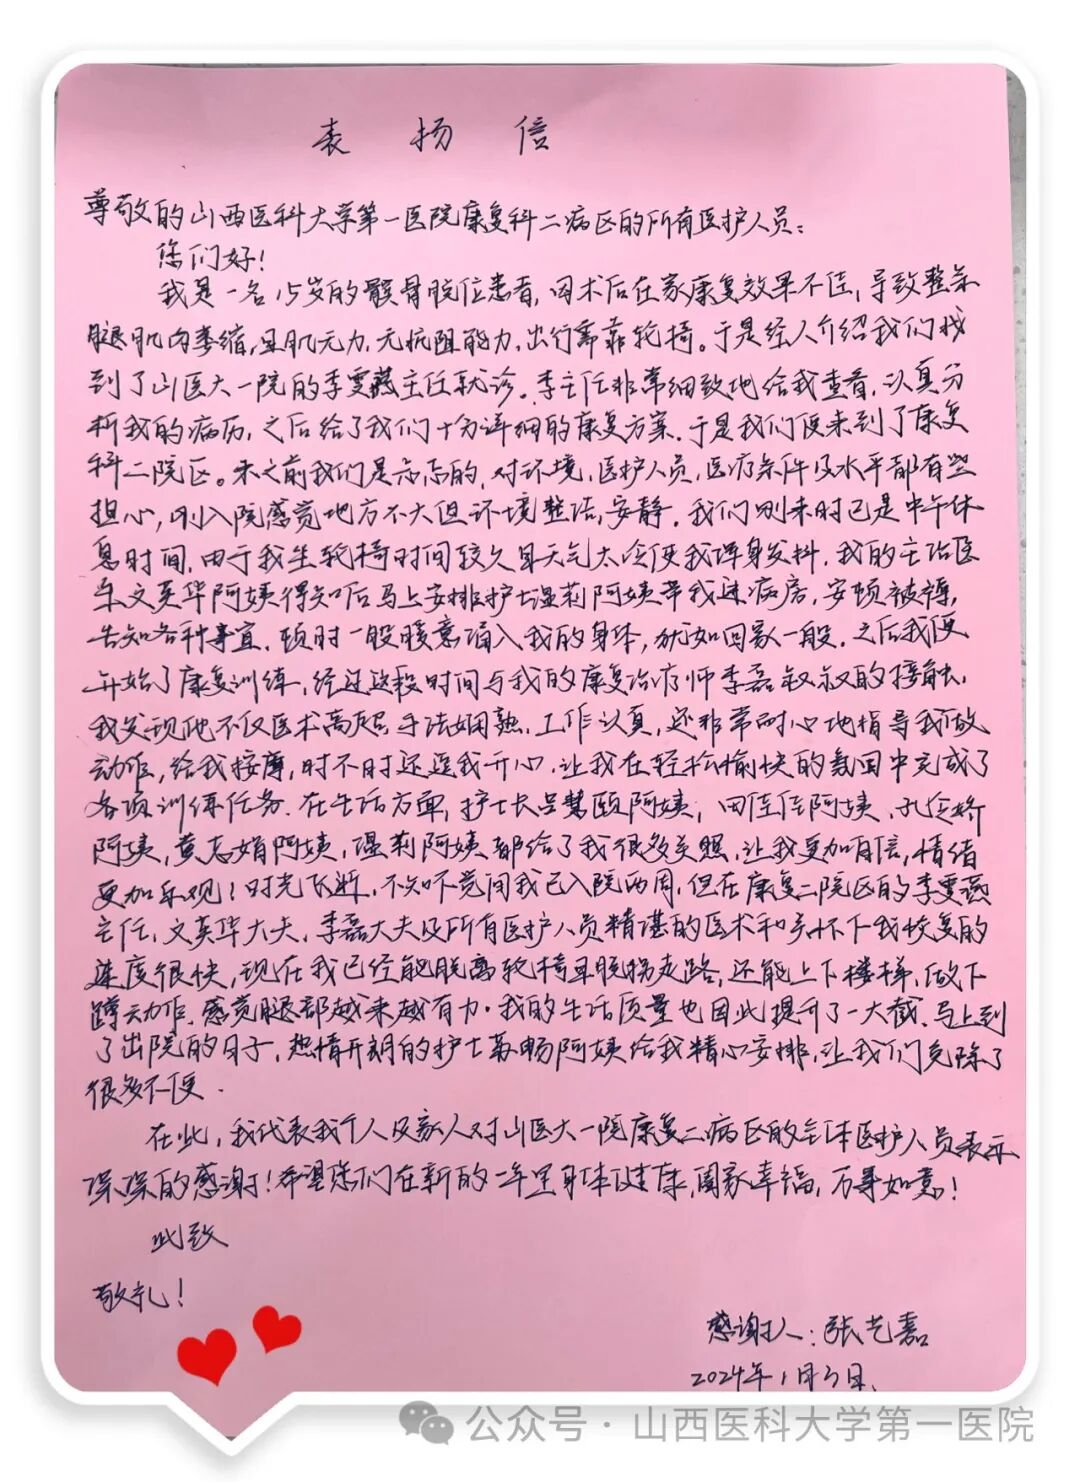 表扬信
尊敬的山西医科大学第一医院康复科二病区的所有医护人员：
您们好！
我是一名15岁的髌骨脱位患者，因术后在家康复效果不佳，导致整条
腿肌肉萎缩，且肌无力，无抗阻能力，出行需靠轮椅。于是经人介绍我们找
到了山医大一院的李雯燕主任就诊。李主任非常细致地给我查看，认真分
析我的病历，之后给了我们十分详细的康复方案，于是我们便来到了康复
科二院区。来之前我们是忐忑的，对环境，医护人员，医疗条件及水平都有些
担心，刚入院感觉地方不大但环境整洁，安静。我们刚来时已是中午休
息时间，由于我坐轮椅时间较久且天气太冷使我浑身发抖，我的主治医
生文英华阿姨得知后马上安排护士温莉阿姨带我进病房，安顿被褥，
告知各种事宜，顿时一股暖意涌入我的身体，犹如回家一般。之后我便
开始了康复训练，经过这段时间与我的康复治疗师李磊叔叔的接触，
我发现他不仅医术高超，手法娴熟，工作认真，还非常耐心地指导我做
动作，给我按摩，时不时还逗我开心，让我在轻松愉快的氛围中完成了
各项训练任务。在生活方面，护士长吕慧颐阿姨，田佳佳阿姨，孔令娇
阿姨，黄志娟阿姨，温莉阿姨都给了我很多关照，让我更加自信，情绪
更加乐观！时光飞逝，不知不觉间我已入院两周，但在康复二院区的李雯燕
主任，文英华大夫，李磊大夫及所有医护人员精谌的医术和关怀下我恢复的
速度很快，现在我已经能脱离轮椅且脱拐走路，还能上下楼梯，做下
蹲动作，感觉腿部越来越有力。我的生活质量也因此提升了一大截，马上到
了出院的日子，热情开朗的护士苏畅阿姨给我精心安排，让我们免除了
很多不便。
在此，我代表我个人及家人对山医大一院康复二病区的全体医护人员表示
深深的感谢！希望您们在新的一年里身体健康，阖家幸福，万事如意！
此致
敬礼！
感谢人：张艺嘉
2024年1月3日.
公众号·山西医科大学第一医院